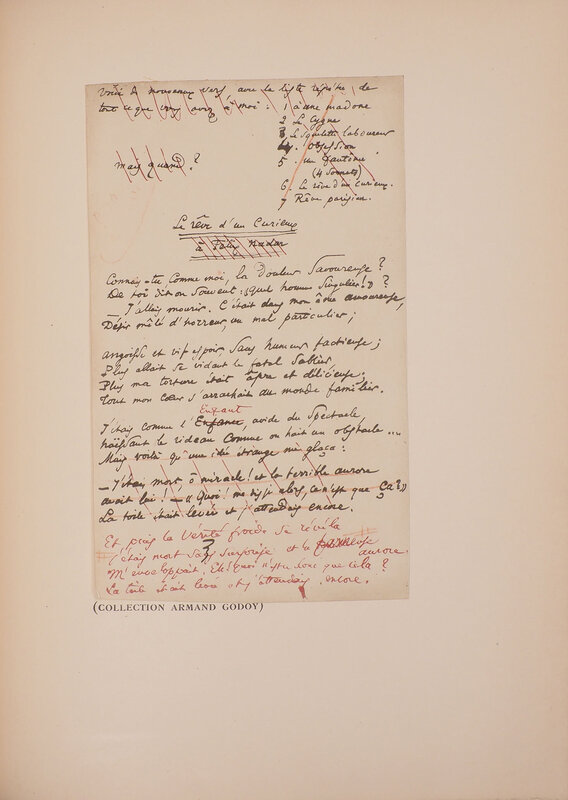 Voici à nouveaux vers, avec la liste de
tout ce que vous avez à moi : 1 à une madone
2 Le Cygne
3 Le Squelette laboureur
4. Obsession
mais quand ?
5. un fantôme
(4 sonnets)
6. Le rêve d'un curieux.
7 Rêve parisien.
Le rêve d'un Curieux
à Félix Nadar
Connais-tu comme moi, la Douleur Savoureuse ?
De toi dit-on souvent : « Quel homme singulier ! » ?
— J'allais mourir. C'était dans mon âme amoureuse,
Désir mêlé d'horreur, un mal particulier ;
angoisse et vif espoir, sans humeur factieuse ;
Plus allait se vidant le fatal sablier,
Plus ma torture était âpre et délicieuse ;
Tout mon cœur s'arrachait au monde familier.
Enfant
J'étais comme l'Enfance, avide du Spectacle,
haïssant le rideau comme on hait un obstacle ...
Mais voilà qu'une idée étrange me glaça :
— J'étais mort, ô miracle ! et la terrible aurore
avait lui ! — « Quoi ! me dis-je alors, ce n'est que ça ? »
La toile était levée et j'attendais encore.
Et puis la Vérité froide se révéla
J'étais mort sans surprise et la aurore
M'enveloppait. Eh ! quoi n'est-ce donc que cela ?
La toile était levée et j'attendais encore.
(COLLECTION ARMAND GODOY)